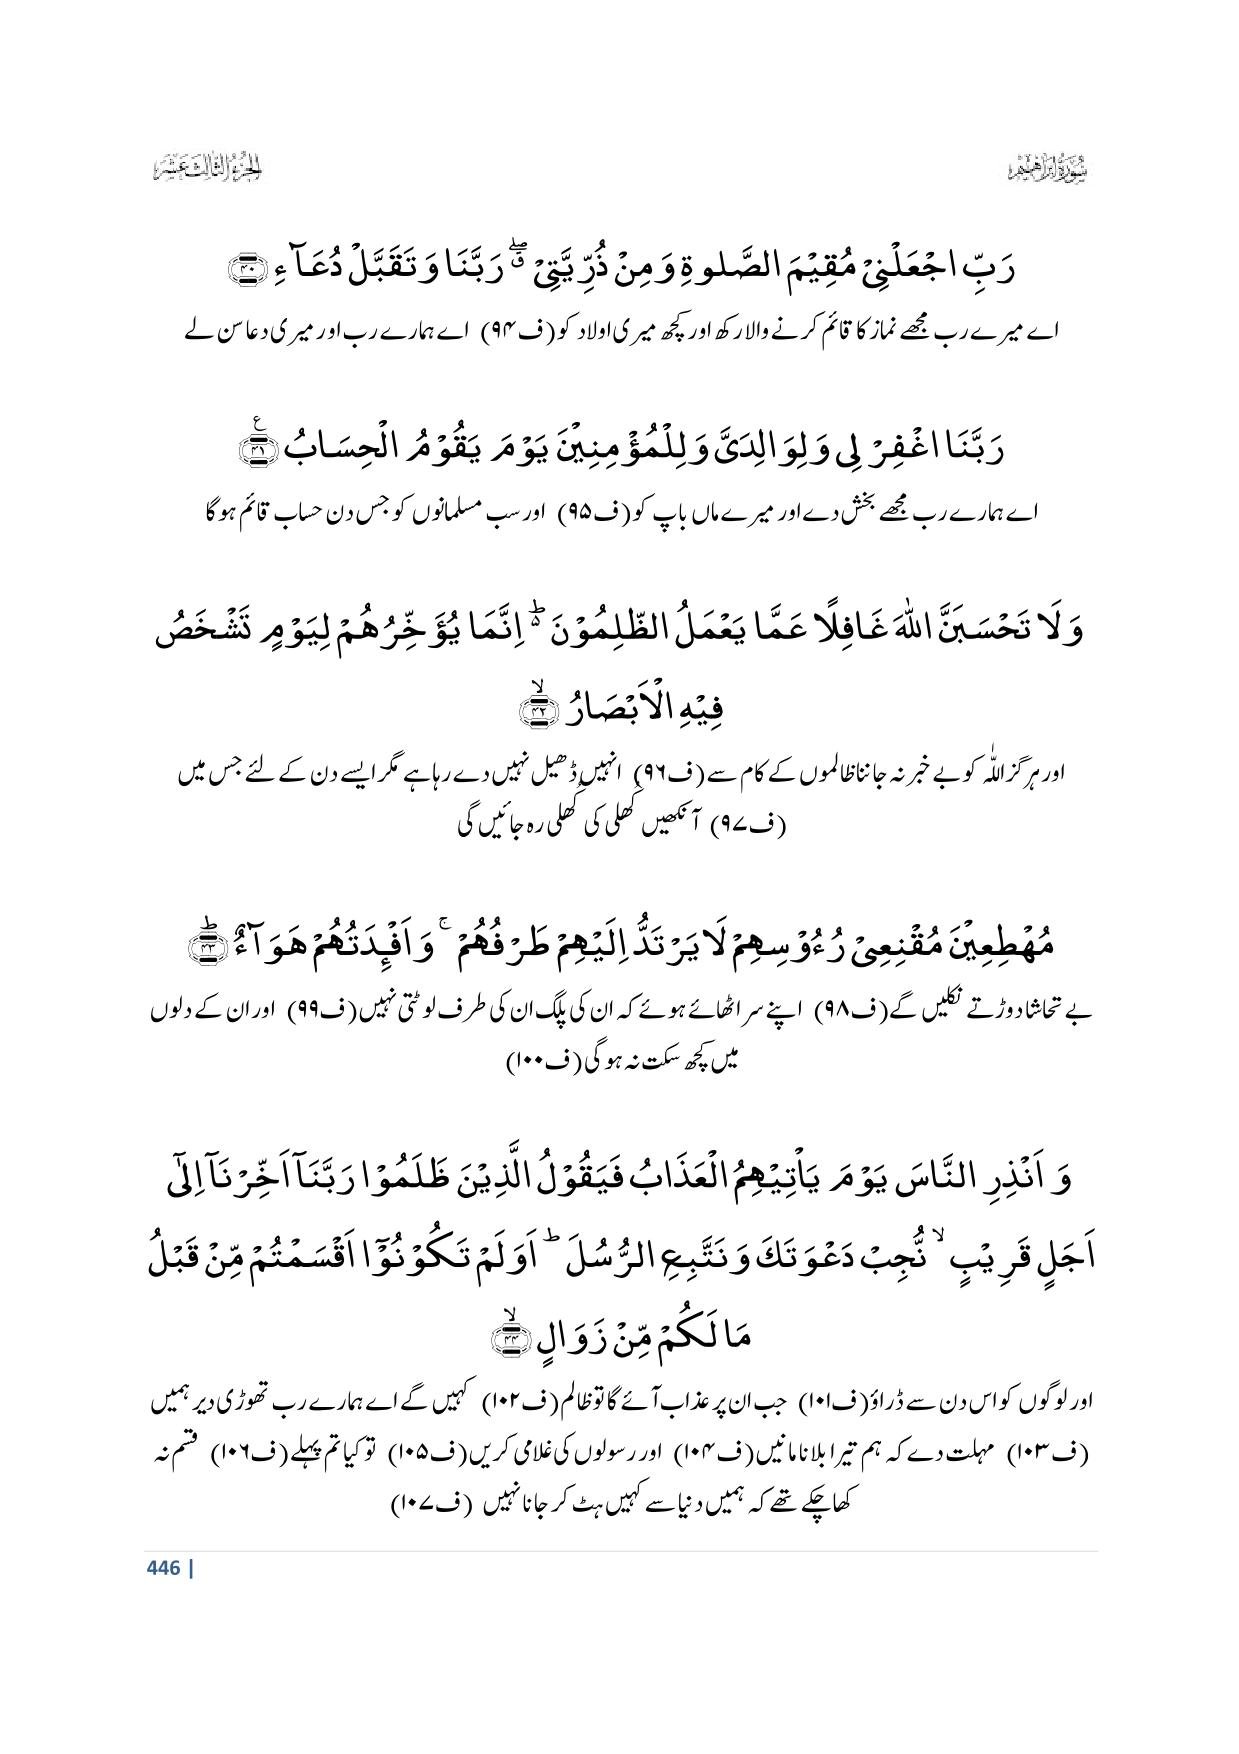 سُوْرَۃُ اِبْرَاهِيْم
الجُزْءُ الثَّالِث عَشَر
رَبِّ اجْعَلْنِیْ مُقِیْمَ الصَّلٰوةِ وَ مِنْ ذُرِّیَّتِیْ ۖۗ رَبَّنَا وَ تَقَبَّلْ دُعَآءِ ﴿۴۰﴾
اے میرے رب مجھے نماز کا قائم کرنے والا رکھ اور کچھ میری اولاد کو (ف۹۴) اے ہمارے رب اور میری دعا سن لے
رَبَّنَا اغْفِرْ لِی وَ لِوَالِدَیَّ وَ لِلْمُؤْمِنِیْنَ یَوْمَ یَقُوْمُ الْحِسَابُ ﴿۴۱﴾ ع
اے ہمارے رب مجھے بخش دے اور میرے ماں باپ کو (ف۹۵) اور سب مسلمانوں کو جس دن حساب قائم ہوگا
وَ لَا تَحْسَبَنَّ اللّٰهَ غَافِلًا عَمَّا یَعْمَلُ الظّٰلِمُوْنَ ۬ؕ اِنَّمَا یُؤَخِّرُهُمْ لِیَوْمٍ تَشْخَصُ
فِیْهِ الْاَبْصَارُ ﴿۴۲﴾ۙ
اور ہرگز اللّٰہ کو بے خبر نہ جاننا ظالموں کے کام سے (ف۹۶) انہیں ڈھیل نہیں دے رہا ہے مگر ایسے دن کے لئے جس میں
(ف۹۷) آنکھیں کھلی کی کھلی رہ جائیں گی
مُهْطِعِیْنَ مُقْنِعِیْ رُءُوْسِهِمْ لَا یَرْتَدُّ اِلَیْهِمْ طَرْفُهُمْ ۚ وَ اَفْـِٕدَتُهُمْ هَوَآءٌ ﴿۴۳﴾ؕ
بے تحاشا دوڑتے نکلیں گے (ف۹۸) اپنے سر اٹھائے ہوئے کہ ان کی پلک ان کی طرف لوٹتی نہیں (ف۹۹) اور ان کے دلوں
میں کچھ سکت نہ ہوگی (ف۱۰۰)
وَ اَنْذِرِ النَّاسَ یَوْمَ یَاْتِیْهِمُ الْعَذَابُ فَیَقُوْلُ الَّذِیْنَ ظَلَمُوْا رَبَّنَاۤ اَخِّرْنَاۤ اِلٰۤی
اَجَلٍ قَرِیْبٍ ۙ نُّجِبْ دَعْوَتَكَ وَ نَتَّبِعِ الرُّسُلَ ؕ اَوَ لَمْ تَكُوْنُوْۤا اَقْسَمْتُمْ مِّنْ قَبْلُ
مَا لَكُمْ مِّنْ زَوَالٍ ﴿۴۴﴾ۙ
اور لوگوں کو اس دن سے ڈراؤ (ف۱۰۱) جب ان پر عذاب آئے گا تو ظالم (ف۱۰۲) کہیں گے اے ہمارے رب تھوڑی دیر ہمیں
(ف۱۰۳) مہلت دے کہ ہم تیرا بلانا مانیں (ف۱۰۴) اور رسولوں کی غلامی کریں (ف۱۰۵) تو کیا تم پہلے (ف۱۰۶) قسم نہ
کھاچکے تھے کہ ہمیں دنیا سے کہیں ہٹ کر جانا نہیں (ف۱۰۷)
446 |